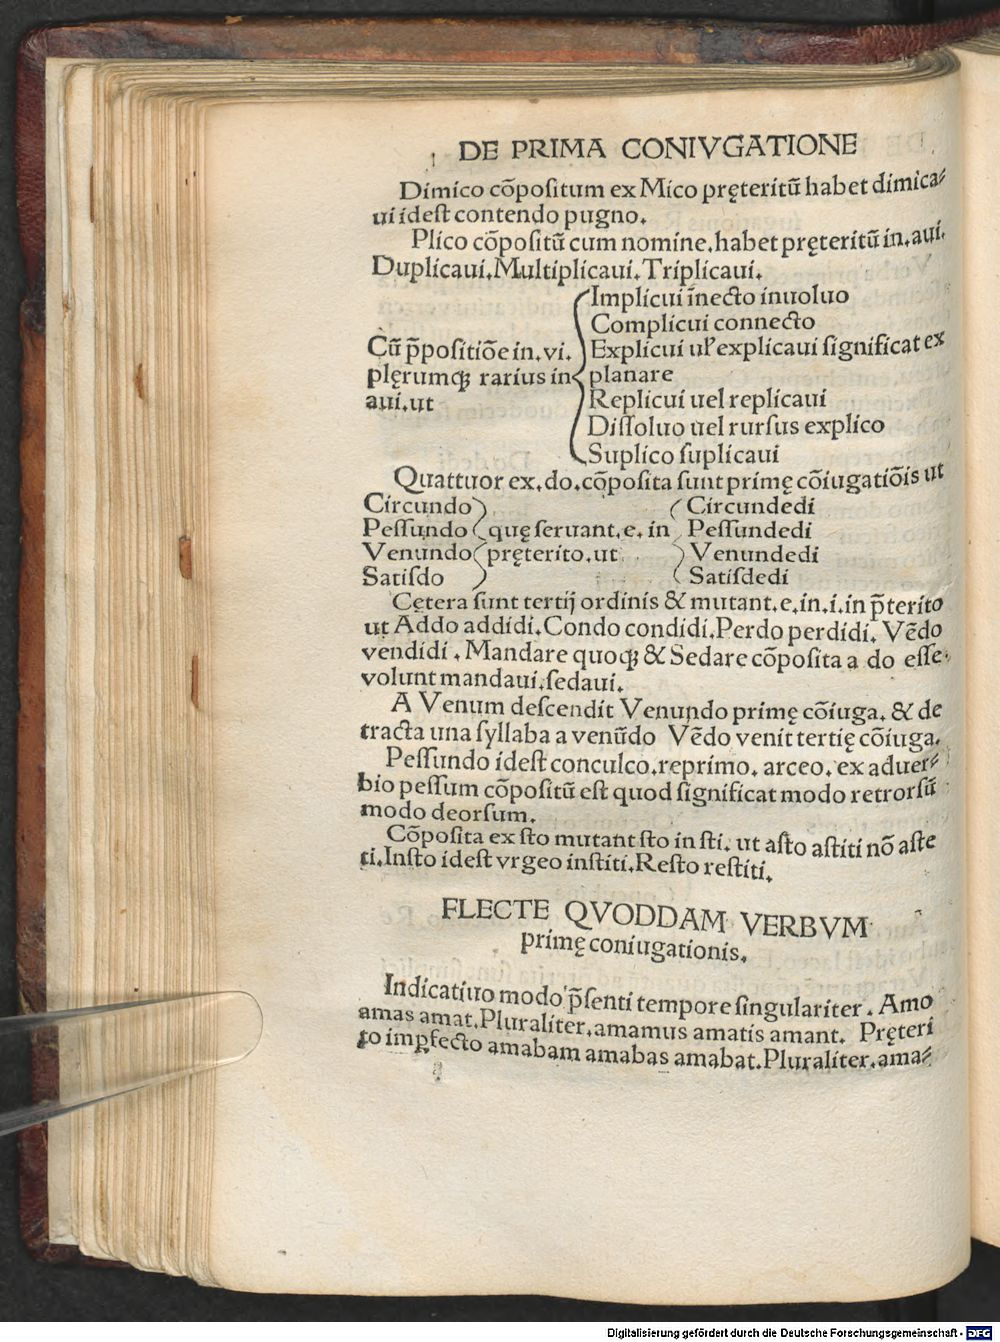 DE PRIMA CONIVGATIONE
Dimico cõpositum ex Mico pręteritũ habet dimica⸗
ui idest contendo pugno.
Plico cõpositũ cum nomine.habet pręteritũ in.aui.
Duplicaui.Multiplicaui.Triplicaui.
Implicui ĩnecto inuoluo
Complicui connecto
Cũ p̃positiõe in.vi. Explicui ul' explicaui significat ex
plęrumqꝫ rarius in planare
aui.ut Replicui uel replicaui
Dissoluo uel rursus explico
Suplico suplicaui
Quattuor ex.do.cõposita sunt primę cõiugatiõis ut
Circundo Circundedi
Pessundo quę seruant.e.in Pessundedi
Venundo pręterito.ut Venundedi
Satisdo Satisdedi
Cętera sunt tertij ordinis & mutant.e.in.i.in p̃terito
ut Addo addidi.Condo condidi.Perdo perdidi. Vẽdo
vendidi . Mandare quoqꝫ & Sedare cõposita a do esse
volunt mandaui.sedaui.
A Venum descendit Venundo primę cõiuga. & de
tracta una syllaba a venũdo Vẽdo venit tertię cõiuga.
Pessundo idest conculco.reprimo. arceo. ex aduer⸗
bio pessum cõpositũ est quod significat modo retrorsũ
modo deorsum.
Cõposita ex sto mutant sto in sti. ut asto astiti nõ aste
ti.Insto idest vrgeo institi.Resto restiti.
FLECTE QVODDAM VERBVM
primę coniugationis.
Indicatiuo modo p̃senti tempore singulariter . Amo
amas amat.Pluraliter.amamus amatis amant. Pręteri
to imꝑfecto amabam amabas amabat.Pluraliter.ama⸗
Digitalisierung gefördert durch die Deutsche Forschungsgemeinschaft - DFG